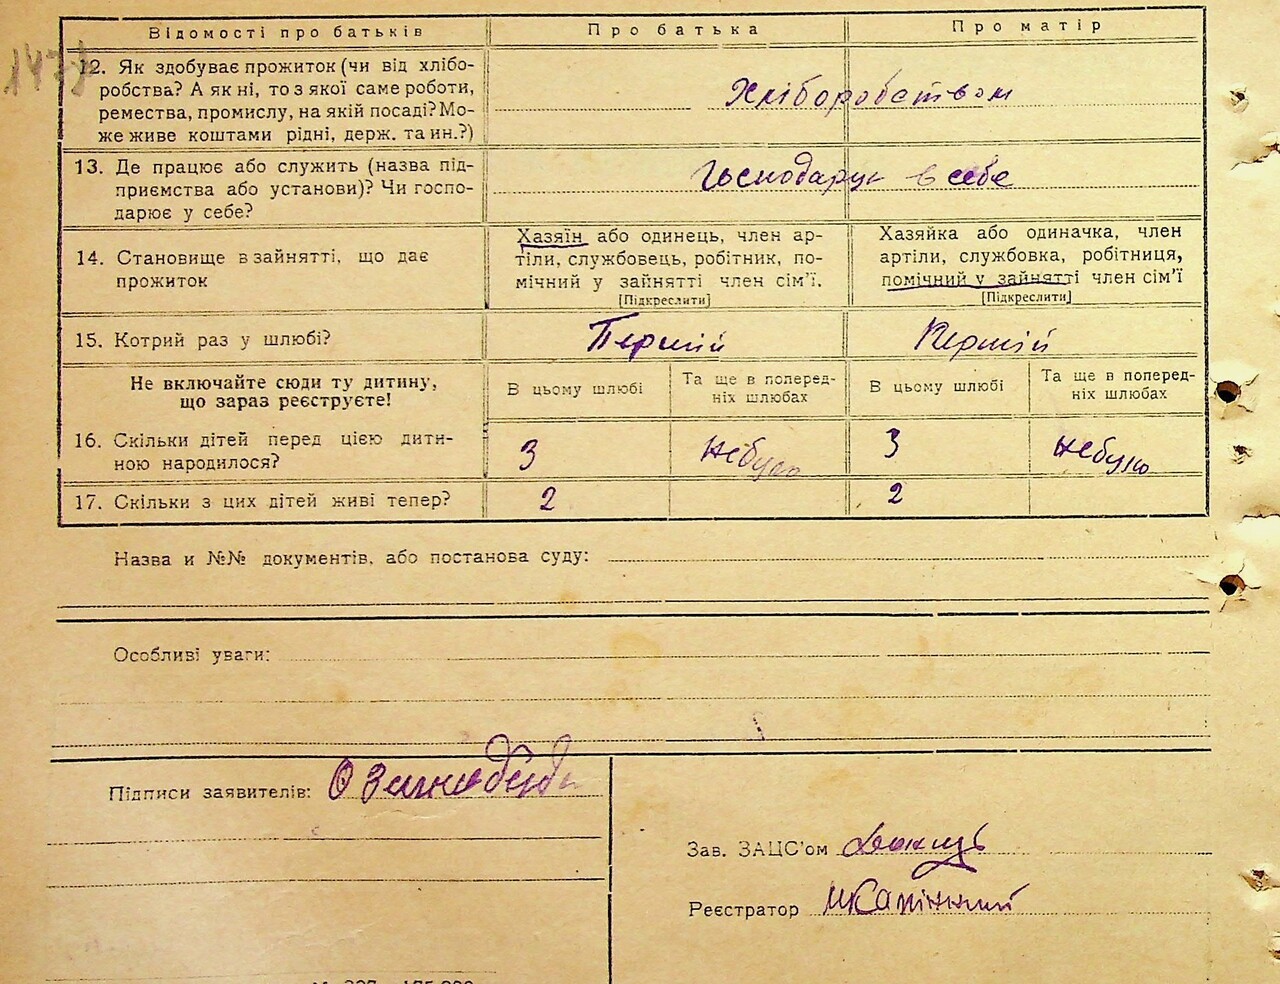 1477
Відомості про батьків Про батька Про матір
12. Як здобуває прожиток (чи від хлібо-
робства? А як ні, то з якої саме роботи,
ремества, промислу, на якій посаді? Мо-
же живе коштами рідні, держ. та ин.?)
Хліборобством
13. Де працює або служить (назва під-
приємства або установи)? Чи госпо-
дарює у себе?
Господарує в себе
14. Становище в зайнятті, що дає
прожиток
Хазяїн або одинець, член ар-
тілі, службовець, робітник, по-
мічний у зайнятті член сім'ї.
[Підкреслити]
Хазяйка або одиначка, член
артілі, службовка, робітниця,
помічний у зайнятті член сім'ї
[Підкреслити]
15. Котрий раз у шлюбі? Перший Перший
Не включайте сюди ту дитину,
що зараз реєструєте!
В цьому шлюбі
Та ще в поперед-
ніх шлюбах
В цьому шлюбі
Та ще в поперед-
ніх шлюбах
16. Скільки дітей перед цією дити-
ною народилося?
3 Небуло 3 Небуло
17. Скільки з цих дітей живі тепер? 2 2
Назва и №№ документів, або постанова суду:
Особливі уваги:
Підписи заявителів:
Зав. ЗАЦС'ом
Реєстратор